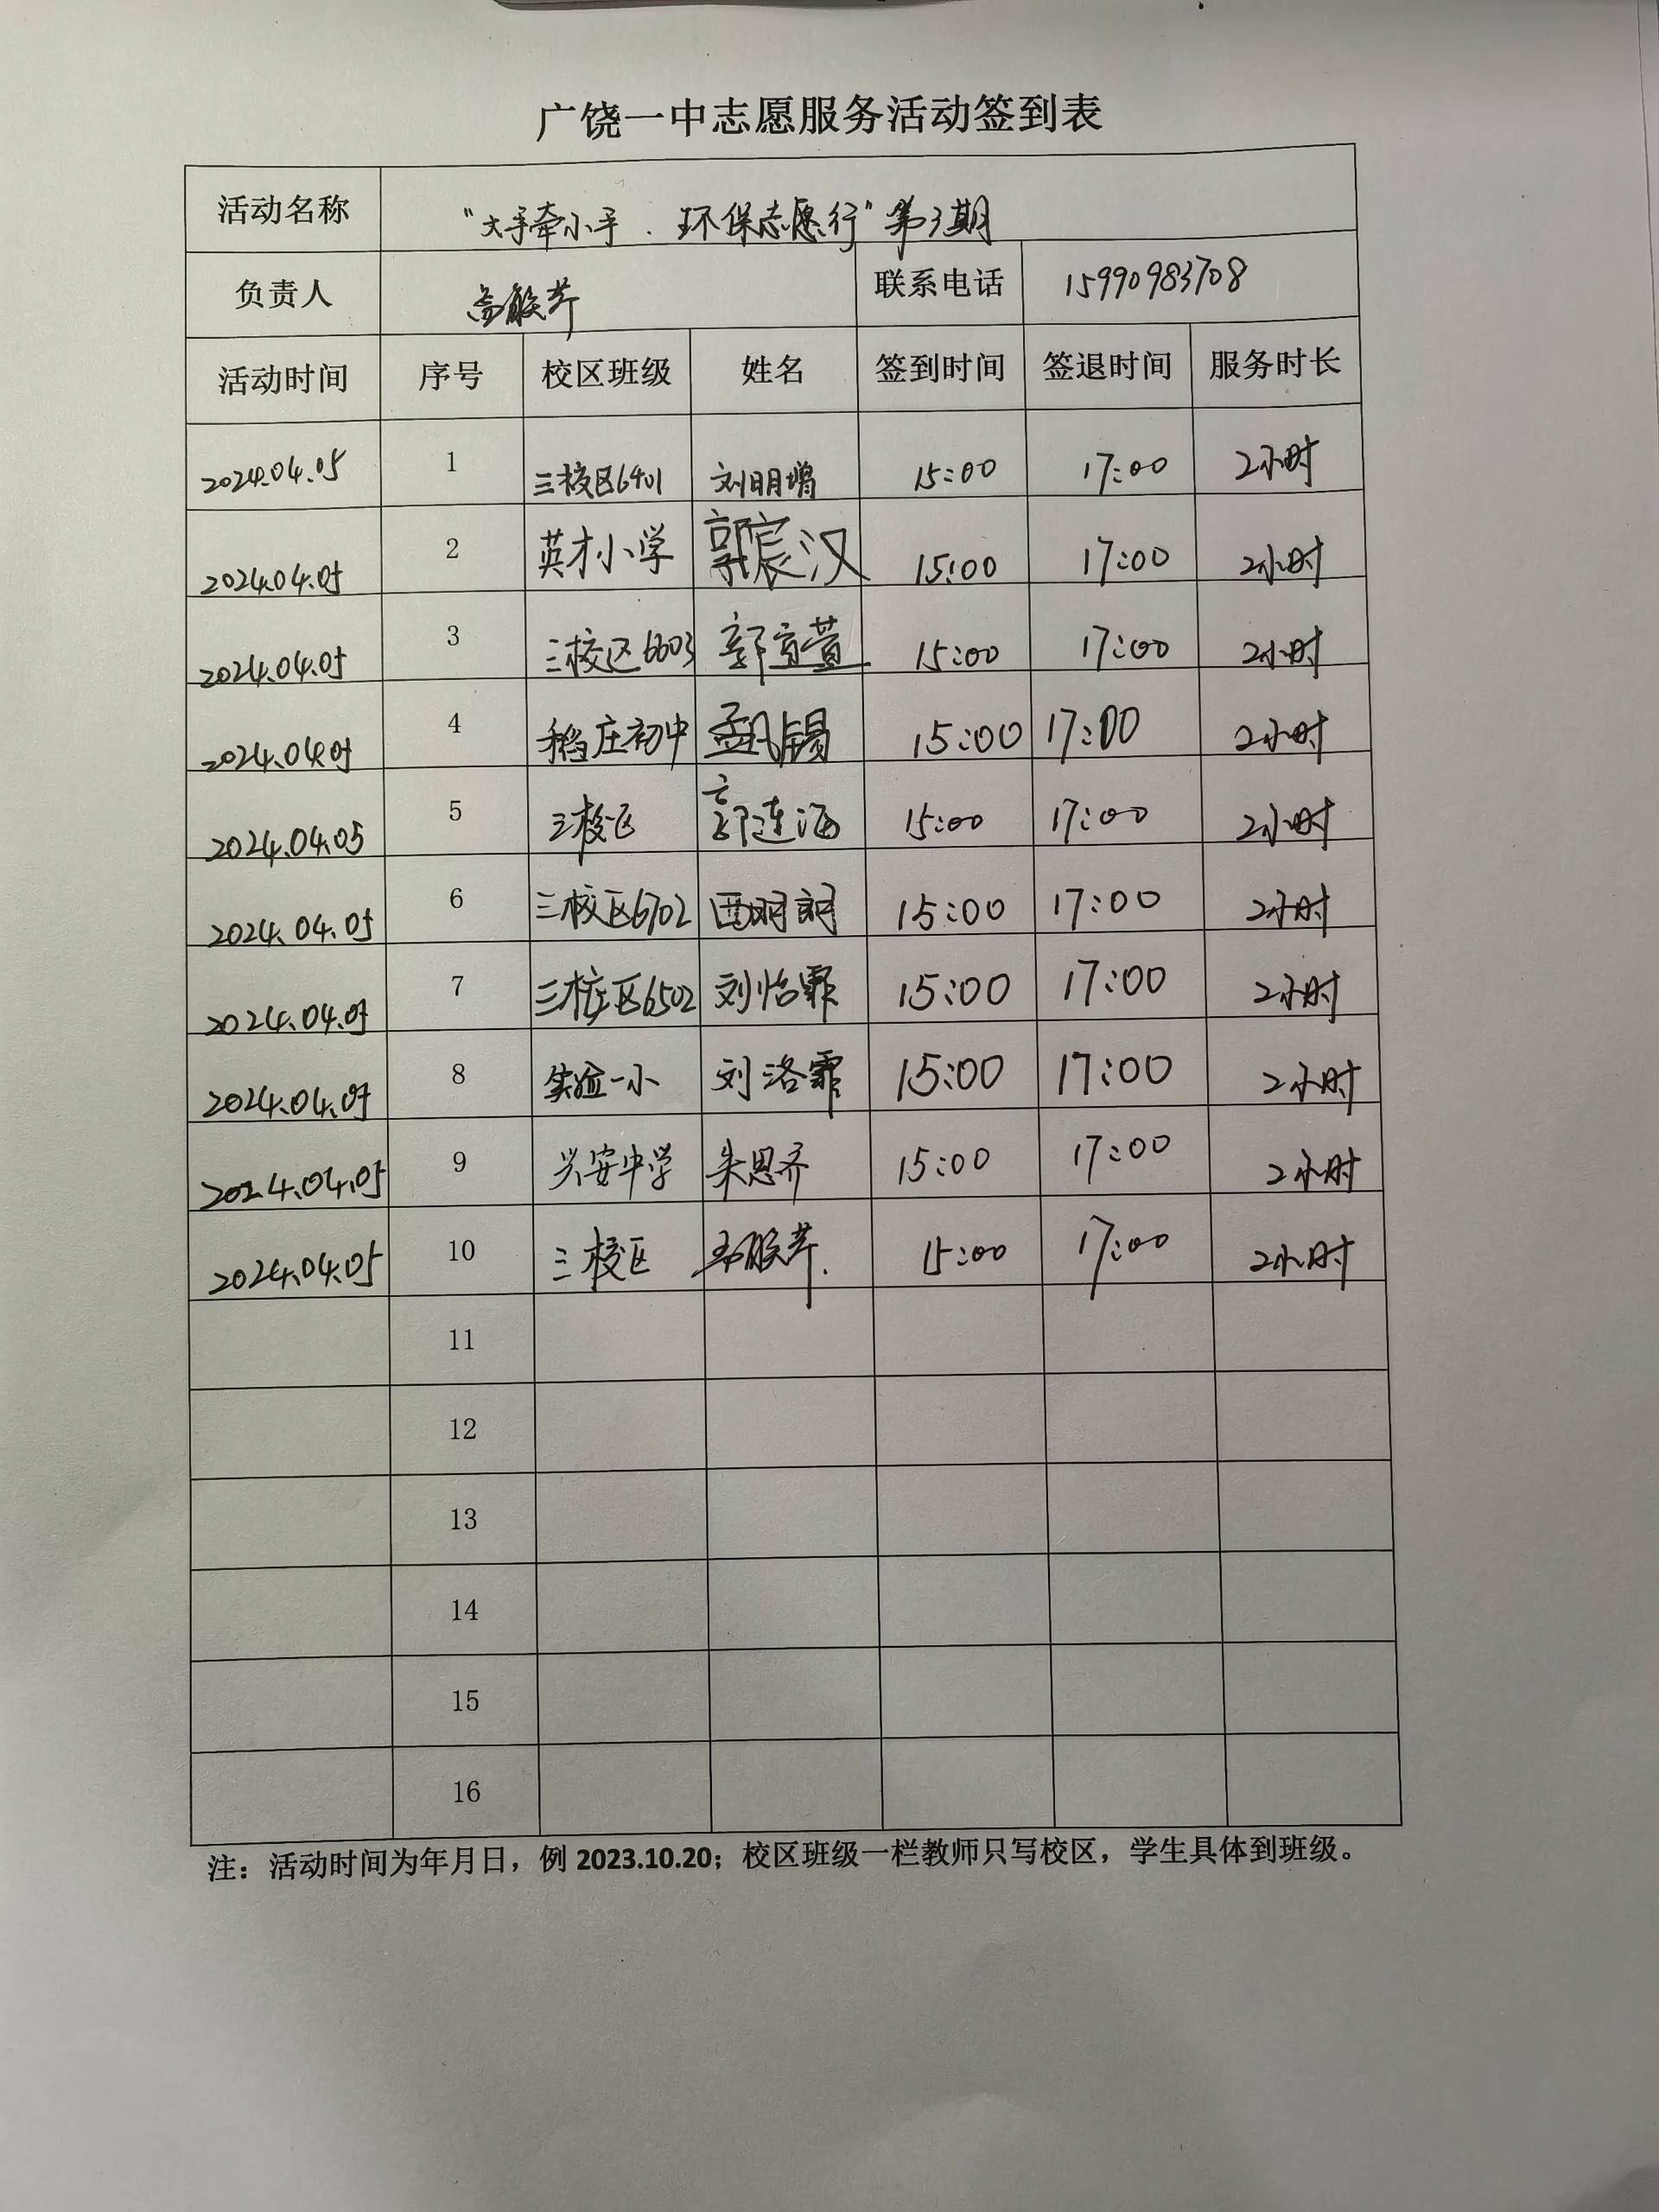 广饶一中志愿服务活动签到表
活动名称 "大手牵小手.环保志愿行"第3期
负责人 联系电话 15990983708
活动时间 序号 校区班级 姓名 签到时间 签退时间 服务时长
2024.04.05 1 三校区6401 刘明增 15:00 17:00 2小时
2024.04.05 2 英才小学 郭宸汉 15:00 17:00 2小时
2024.04.05 3 三校区6603 郭京萱 15:00 17:00 2小时
2024.04.05 4 稻庄初中 孟凡锡 15:00 17:00 2小时
2024.04.05 5 三校区 郭连海 15:00 17:00 2小时
2024.04.05 6 三校区6702 15:00 17:00 2小时
2024.04.05 7 三校区6502 刘怡霏 15:00 17:00 2小时
2024.04.05 8 实验一小 刘洛霏 15:00 17:00 2小时
2024.04.05 9 兴安中学 朱思齐 15:00 17:00 2小时
2024.04.05 10 三校区 15:00 17:00 2小时
11
12
13
14
15
16
注：活动时间为年月日，例 2023.10.20；校区班级一栏教师只写校区，学生具体到班级。